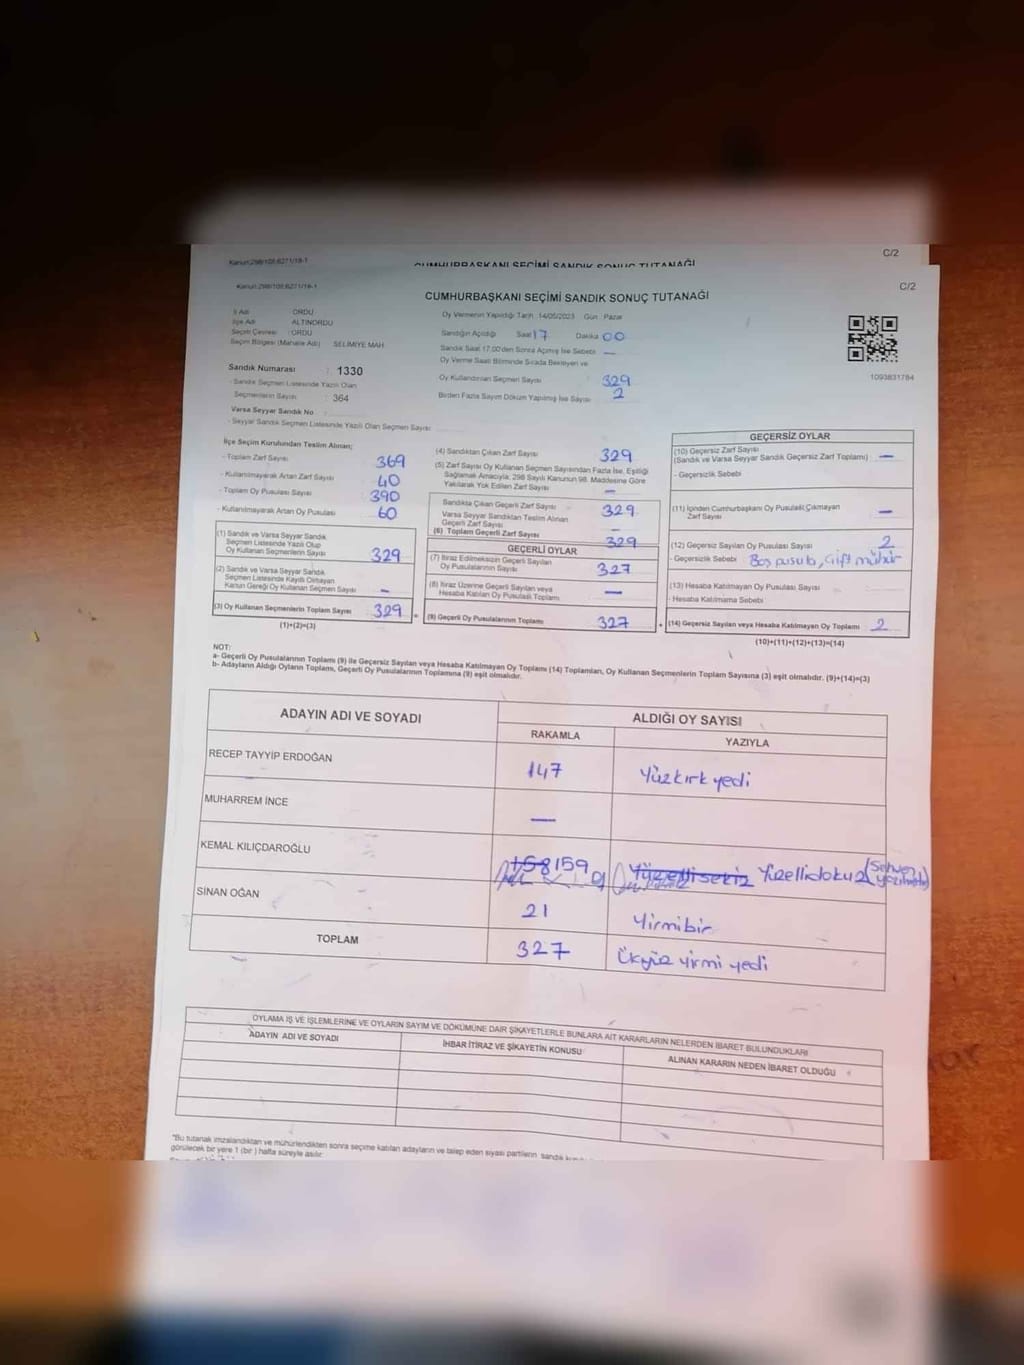 Kanun:298/105.6271/18-1
CUMHURBAŞKANI SEÇİMİ SANDIK SONUÇ TUTANAĞI
C/2
Kanun:298/105.6271/18-1
CUMHURBAŞKANI SEÇİMİ SANDIK SONUÇ TUTANAĞI
C/2
İl Adı : ORDU
İlçe Adı : ALTINORDU
Seçim Çevresi : ORDU
Seçim Bölgesi (Mahalle Adı) SELİMİYE MAH.
Sandık Numarası : 1330
- Sandık Seçmen Listesinde Yazılı Olan
Seçmenlerin Sayısı : 364
Varsa Seyyar Sandık No :
- Seyyar Sandık Seçmen Listesinde Yazılı Olan Seçmen Sayısı :
Oy Vermenin Yapıldığı Tarih :14/05/2023 Gün : Pazar
Sandığın Açıldığı Saat 17 Dakika 00
Sandık Saat 17.00'den Sonra Açılmış İse Sebebi —
Oy Verme Saati Bitiminde Sırada Bekleyen ve
Oy Kullandırılan Seçmen Sayısı 329
Birden Fazla Sayım Döküm Yapılmış İse Sayısı 2
1093831784
İlçe Seçim Kurulundan Teslim Alınan;
- Toplam Zarf Sayısı 369
- Kullanılmayarak Artan Zarf Sayısı 40
- Toplam Oy Pusulası Sayısı 390
- Kullanılmayarak Artan Oy Pusulası 60
(1) Sandık ve Varsa Seyyar Sandık
Seçmen Listesinde Yazılı Olup
Oy Kullanan Seçmenlerin Sayısı 329
(2) Sandık ve Varsa Seyyar Sandık
Seçmen Listesinde Kayıtlı Olmayan
Kanun Gereği Oy Kullanan Seçmen Sayısı —
(3) Oy Kullanan Seçmenlerin Toplam Sayısı 329
(1)+(2)=(3)
(4) Sandıktan Çıkan Zarf Sayısı 329
(5) Zarf Sayısı Oy Kullanan Seçmen Sayısından Fazla İse, Eşitliği
Sağlamak Amacıyla; 298 Sayılı Kanunun 98. Maddesine Göre
Yakılarak Yok Edilen Zarf Sayısı —
Sandıkta Çıkan Geçerli Zarf Sayısı 329
Varsa Seyyar Sandıktan Teslim Alınan
Geçerli Zarf Sayısı —
(6) Toplam Geçerli Zarf Sayısı 329
GEÇERLİ OYLAR
(7) İtiraz Edilmeksizin Geçerli Sayılan
Oy Pusulalarının Sayısı 327
(8) İtiraz Üzerine Geçerli Sayılan veya
Hesaba Katılan Oy Pusulası Toplamı —
(9) Geçerli Oy Pusulalarının Toplamı 327
GEÇERSİZ OYLAR
(10) Geçersiz Zarf Sayısı
(Sandık ve Varsa Seyyar Sandık Geçersiz Zarf Toplamı) —
- Geçersizlik Sebebi
(11) İçinden Cumhurbaşkanı Oy Pusulası Çıkmayan
Zarf Sayısı —
(12) Geçersiz Sayılan Oy Pusulası Sayısı 2
- Geçersizlik Sebebi Boş pusula, çift mühür
(13) Hesaba Katılmayan Oy Pusulası Sayısı
- Hesaba Katılmama Sebebi
(14) Geçersiz Sayılan veya Hesaba Katılmayan Oy Toplamı 2
(10)+(11)+(12)+(13)=(14)
NOT:
a- Geçerli Oy Pusulalarının Toplamı (9) ile Geçersiz Sayılan veya Hesaba Katılmayan Oy Toplamı (14) Toplamları, Oy Kullanan Seçmenlerin Toplam Sayısına (3) eşit olmalıdır. (9)+(14)=(3)
b- Adayların Aldığı Oyların Toplamı, Geçerli Oy Pusulalarının Toplamına (9) eşit olmalıdır.
ADAYIN ADI VE SOYADI
ALDIĞI OY SAYISI
RAKAMLA
YAZIYLA
RECEP TAYYİP ERDOĞAN 147 Yüzkırk yedi
MUHARREM İNCE —
KEMAL KILIÇDAROĞLU 158 159 Yüzellisekiz Yüzellidokuz (Sehven yazılmıştır)
SİNAN OĞAN 21 Yirmibir
TOPLAM 327 Üçyüz yirmi yedi
OYLAMA İŞ VE İŞLEMLERİNE VE OYLARIN SAYIM VE DÖKÜMÜNE DAİR ŞİKAYETLERLE BUNLARA AİT KARARLARIN NELERDEN İBARET BULUNDUKLARI
ADAYIN ADI VE SOYADI
İHBAR İTİRAZ VE ŞİKAYETİN KONUSU
ALINAN KARARIN NEDEN İBARET OLDUĞU
*Bu tutanak imzalandıktan ve mühürlendikten sonra seçime katılan adayların ve talep eden siyasi partilerin sandık
görülecek bir yere 1 (bir ) hafta süreyle asılır.